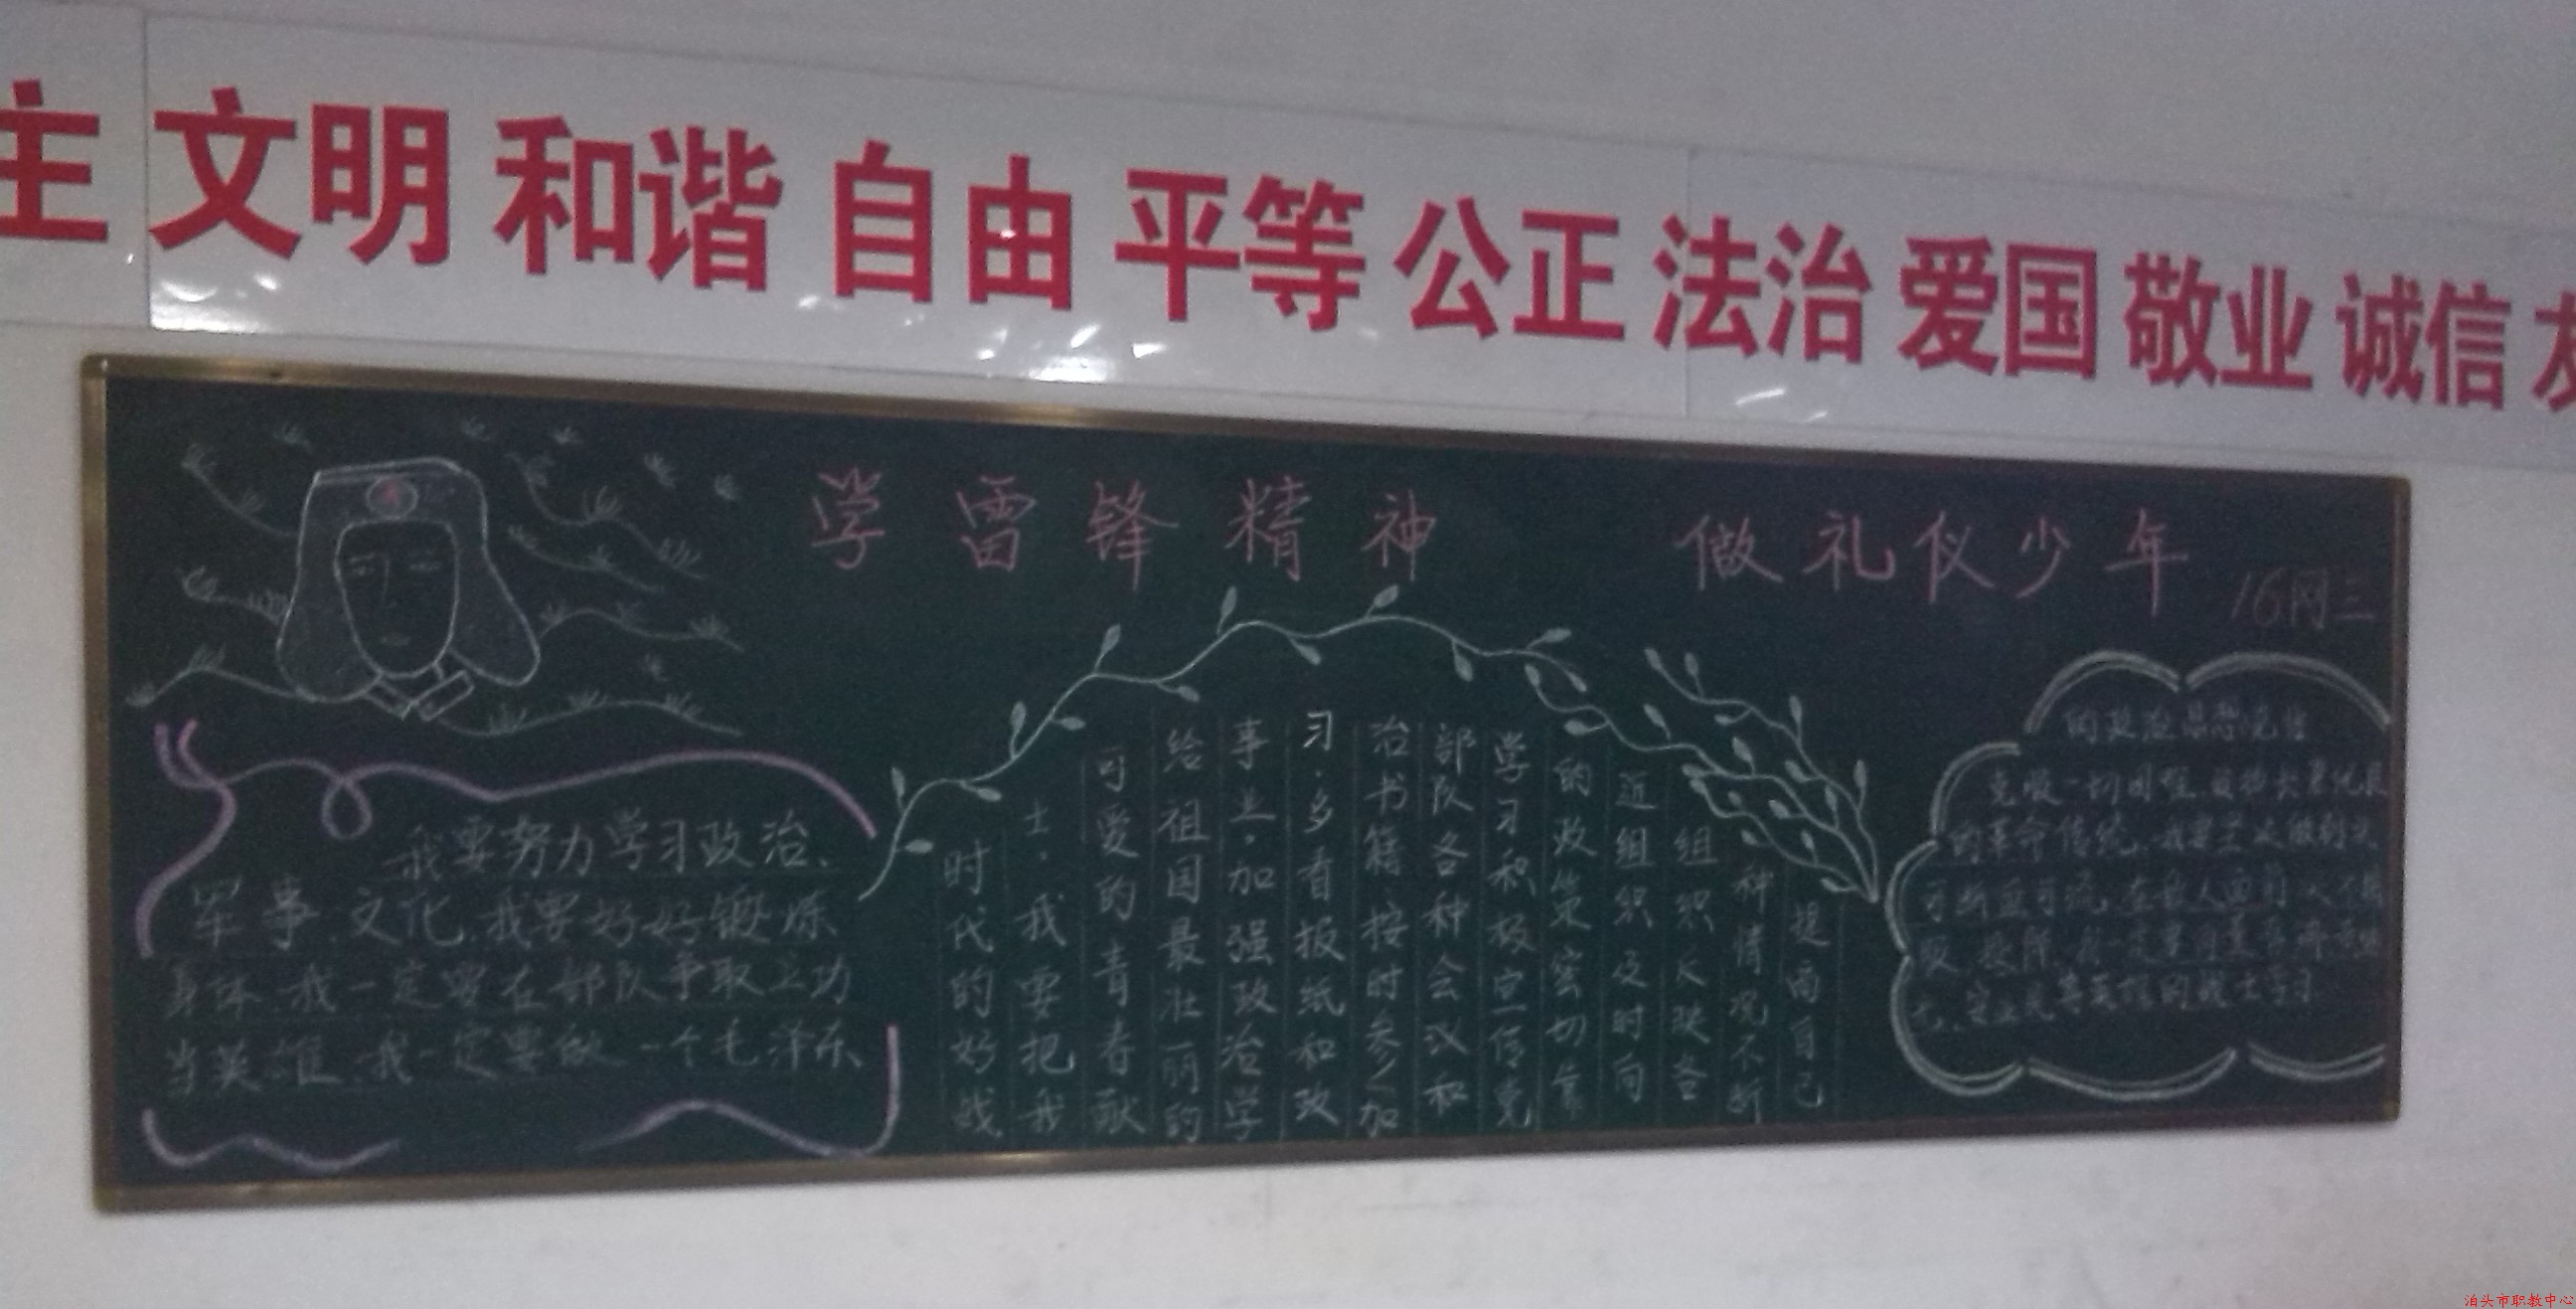 主 文明 和谐 自由 平等 公正 法治 爱国 敬业 诚信 友
学雷锋精神 做礼仪少年
16网三
我要努力学习政治、
军事、文化、我要好好锻炼
身体、我一定要在部队争取立功
当英雄、我一定要做一个毛泽东
时代的好战
士,我要把我
可爱的青春献
给祖国最壮丽的
事业,加强政治学
习,多看报纸和政
治书籍按时参加
部队各种会议和
学习积极宣传党
的政策密切靠
近组织及时向
组织反映各
种情况不断
提高自己
的政治思想觉悟
克服一切困难
的革命传统,我要坚决做到头
可断血可流,在敌人面前
的战士学习
泊头市职教中心